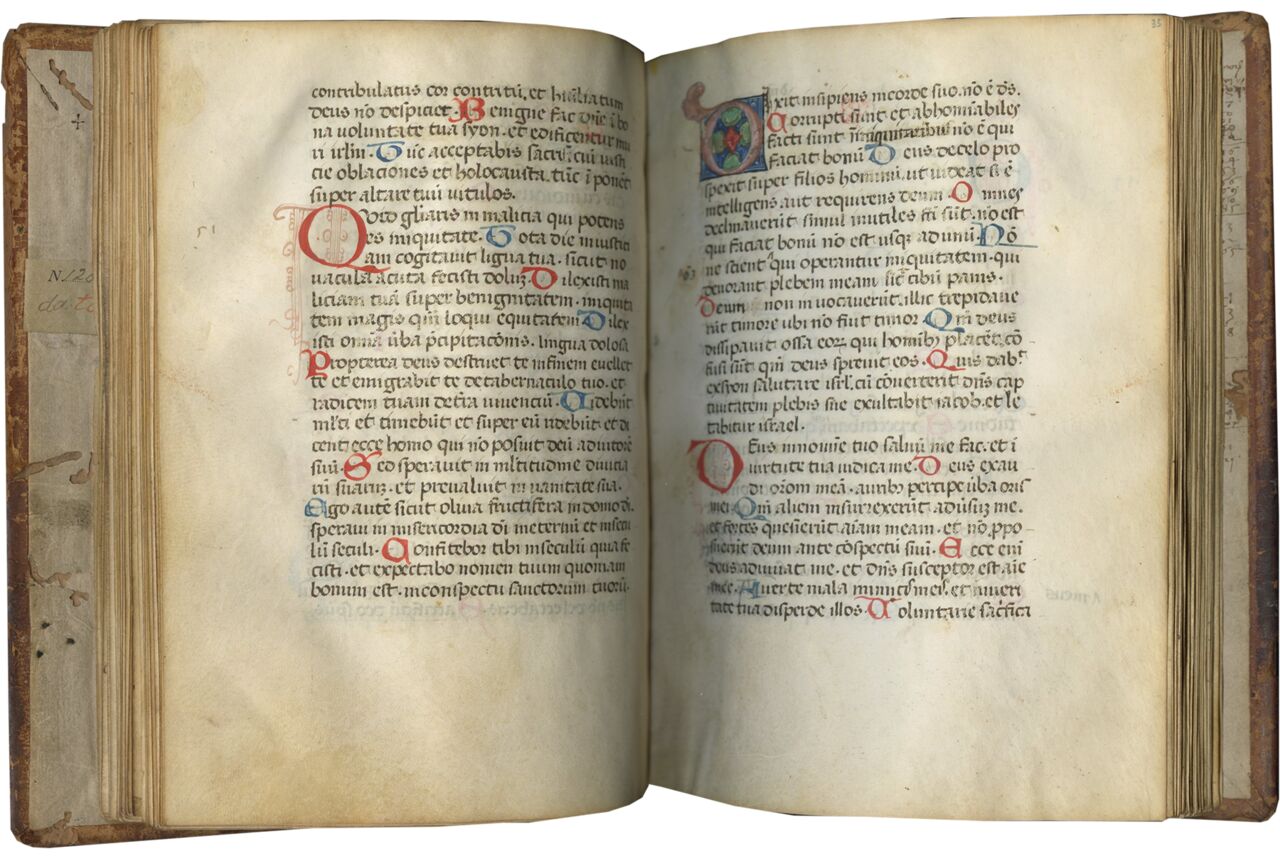 contribulatus cor contritū, et hūiliatum
deus nō despicies. Benigne fac dn̄e ī bo
na voluntate tua syon. et edificentur mu
ri irlm̄. Tūc acceptabis sacr̄. ciū iusti
cie oblaciones et holocausta. tūc ī ponēt
super altare tuū vitulos.
Quid gl̄iaris in malicia qui potens
es iniquitate. Tota die iniustici
am cogitavit ligua tua. sicut no
vacula acuta fecisti dolū. Dilexisti ma
liciam tuā super benignitatem. iniquita
tem magis qm̄ loqui equitatem. Dilex
isti omīa ūba p̄cipitacōnis. lingua dolosa
Propterea deus destruet te in finem evellet
te et emigrabit te de tabernaculo tuo. et
radicem tuam de t̄ra viventiū. Videbūt
iusti et timebūt et super eū ridebūt et di
cent ecce homo qui nō posuit deū adiutorē
suū. Sed speravit in ml̄titudine divicia
rū suarū. et prevaluit in vanitate sua.
Ego autē sicut oliva fructifera in domo dī.
speravi in misericordia dī in eternū et in secu
lū seculi. Confitebor tibi in seculū quia fe
cisti. et expectabo nomen tuum quoniam
bonum est. in conspectu sanctorum tuorū.
35
Dixit insipiens in corde suo. nō ē ds̄.
Corrupti sunt et abhominabiles
facti sunt in iniquitatibus nō ē qui
faciat bonū. Deus de celo pro
spexit super filios hominū. ut videat si ē
intelligens aut requirens deum. Omnes
declinaverūt simul inutiles fc̄i sūt. nō est
qui faciat bonū nō est usq; ad unū. Nō
ne scient qui operantur iniquitatem. qui
devorant plebem meam sic̄ cibū panis.
Deum non invocaverūt. illic trepidave
rūt timore ubi nō fuit timor. Qm̄ deus
dissipavit ossa eor̄ qui hominib; placēt. cō
fusi sūt qm̄ deus sprevit eos. Quis dab̄t
ex syon salutare isrl̄. cū cōverterit dn̄s cap
tivitatem plebis sue exultabit iacob. et le
tabitur israel.
Deus in noīne tuo salvū me fac. et ī
virtute tua iudica me. Deus exau
di orōm meā. aurib; percipe ūba oris
mei. Qm̄ alieni insurrexerūt adūsū me.
et fortes quesierūt aīam meam. et nō p̄po
suerūt deum ante cōspectū suū. Ecce enī
deus adiuvat me. et dn̄s susceptor est aīe
mee. Averte mala inimicis meis. et in veri
tate tua disperde illos. Voluntarie sac̄fica